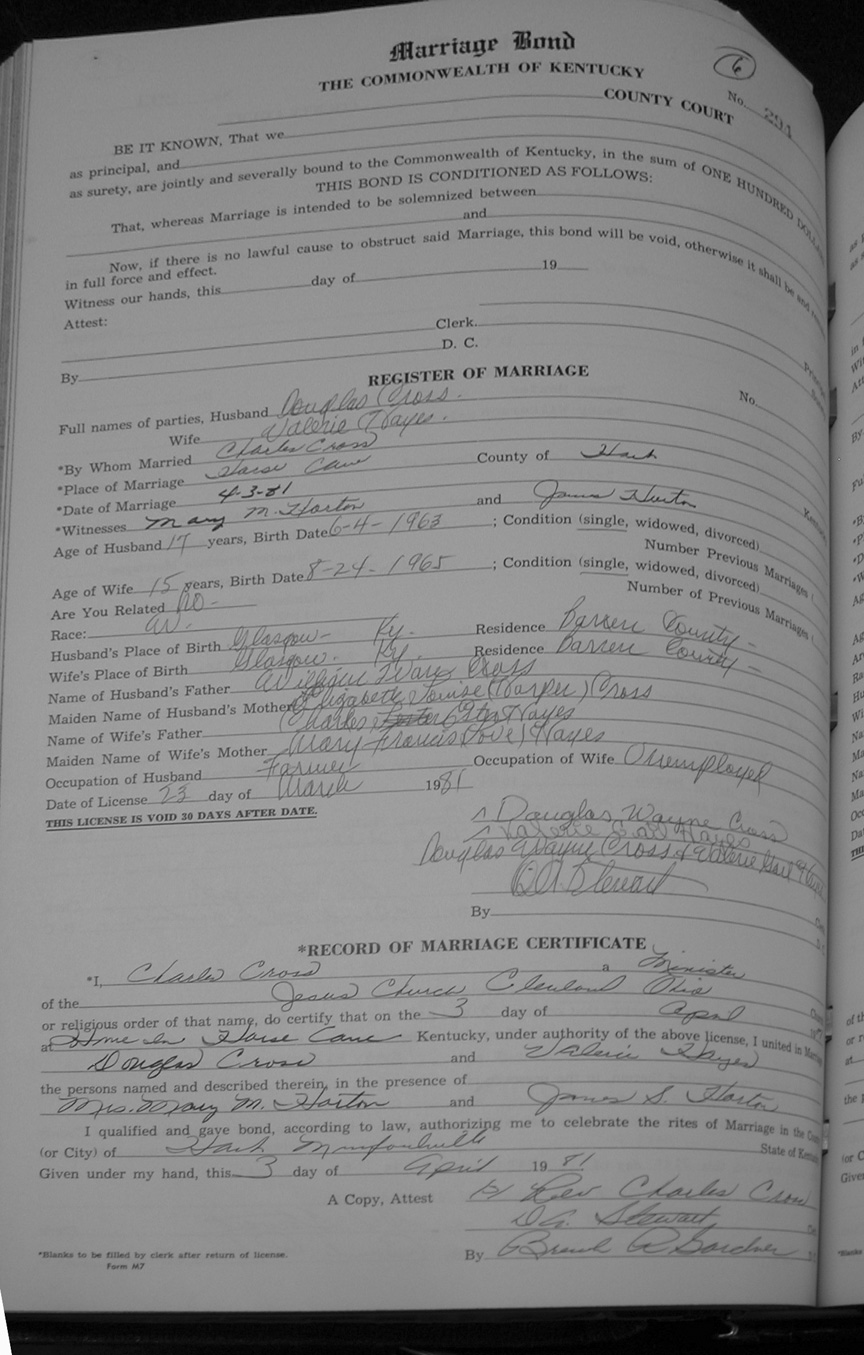 Marriage Bond
6
THE COMMONWEALTH OF KENTUCKY
No. 291
COUNTY COURT
BE IT KNOWN, That we
as principal, and
as surety, are jointly and severally bound to the Commonwealth of Kentucky, in the sum of ONE HUNDRED
THIS BOND IS CONDITIONED AS FOLLOWS:
That, whereas Marriage is intended to be solemnized between
and
Now, if there is no lawful cause to obstruct said Marriage, this bond will be void, otherwise it shall be and
in full force and effect.
Witness our hands, this day of 19
Attest:
Clerk.
D. C.
By
REGISTER OF MARRIAGE
No.
Full names of parties, Husband Douglas Cross.
Wife Valerie Hayes.
*By Whom Married Charles Cross
*Place of Marriage Horse Cave County of Hart
*Date of Marriage 4-3-81
*Witnesses Mary M. Horton and James Horton
Age of Husband 17 years, Birth Date 6-4-1963; Condition (single, widowed, divorced)
Number Previous Marriages (
Age of Wife 15 years, Birth Date 8-24-1965; Condition (single, widowed, divorced)
Number of Previous Marriages (
Are You Related No-
Race: W.
Husband's Place of Birth Glasgow- Ky. Residence Barren County-
Wife's Place of Birth Glasgow. Ky. Residence Barren County-
Name of Husband's Father William Cross
Maiden Name of Husband's Mother Elizabeth Louise (Harper) Cross
Name of Wife's Father Charles Hayes
Maiden Name of Wife's Mother Mary Francis (Love) Hayes
Occupation of Husband Farmer Occupation of Wife Unemployed
Date of License 23 day of March 1981
THIS LICENSE IS VOID 30 DAYS AFTER DATE.
Douglas Wayne Cross
Valerie Gail Hayes
Douglas Wayne Cross & Valerie Gail
D.A. Stewart
By
*RECORD OF MARRIAGE CERTIFICATE
*I, Charles Cross a Minister
of the Jesus Church Cleveland Ohio
or religious order of that name, do certify that on the 3 day of April
at Home In Horse Cave Kentucky, under authority of the above license, I united in
Douglas Cross and Valerie Hayes
the persons named and described therein, in the presence of
Mrs. Mary M. Horton and James S. Horton
I qualified and gave bond, according to law, authorizing me to celebrate the rites of Marriage in the
(or City) of Hart Munfordville State of
Given under my hand, this 3 day of April 1981.
A Copy, Attest Rev Charles Cross
D.A. Stewart
By Gardner
*Blanks to be filled by clerk after return of license.
Form M7